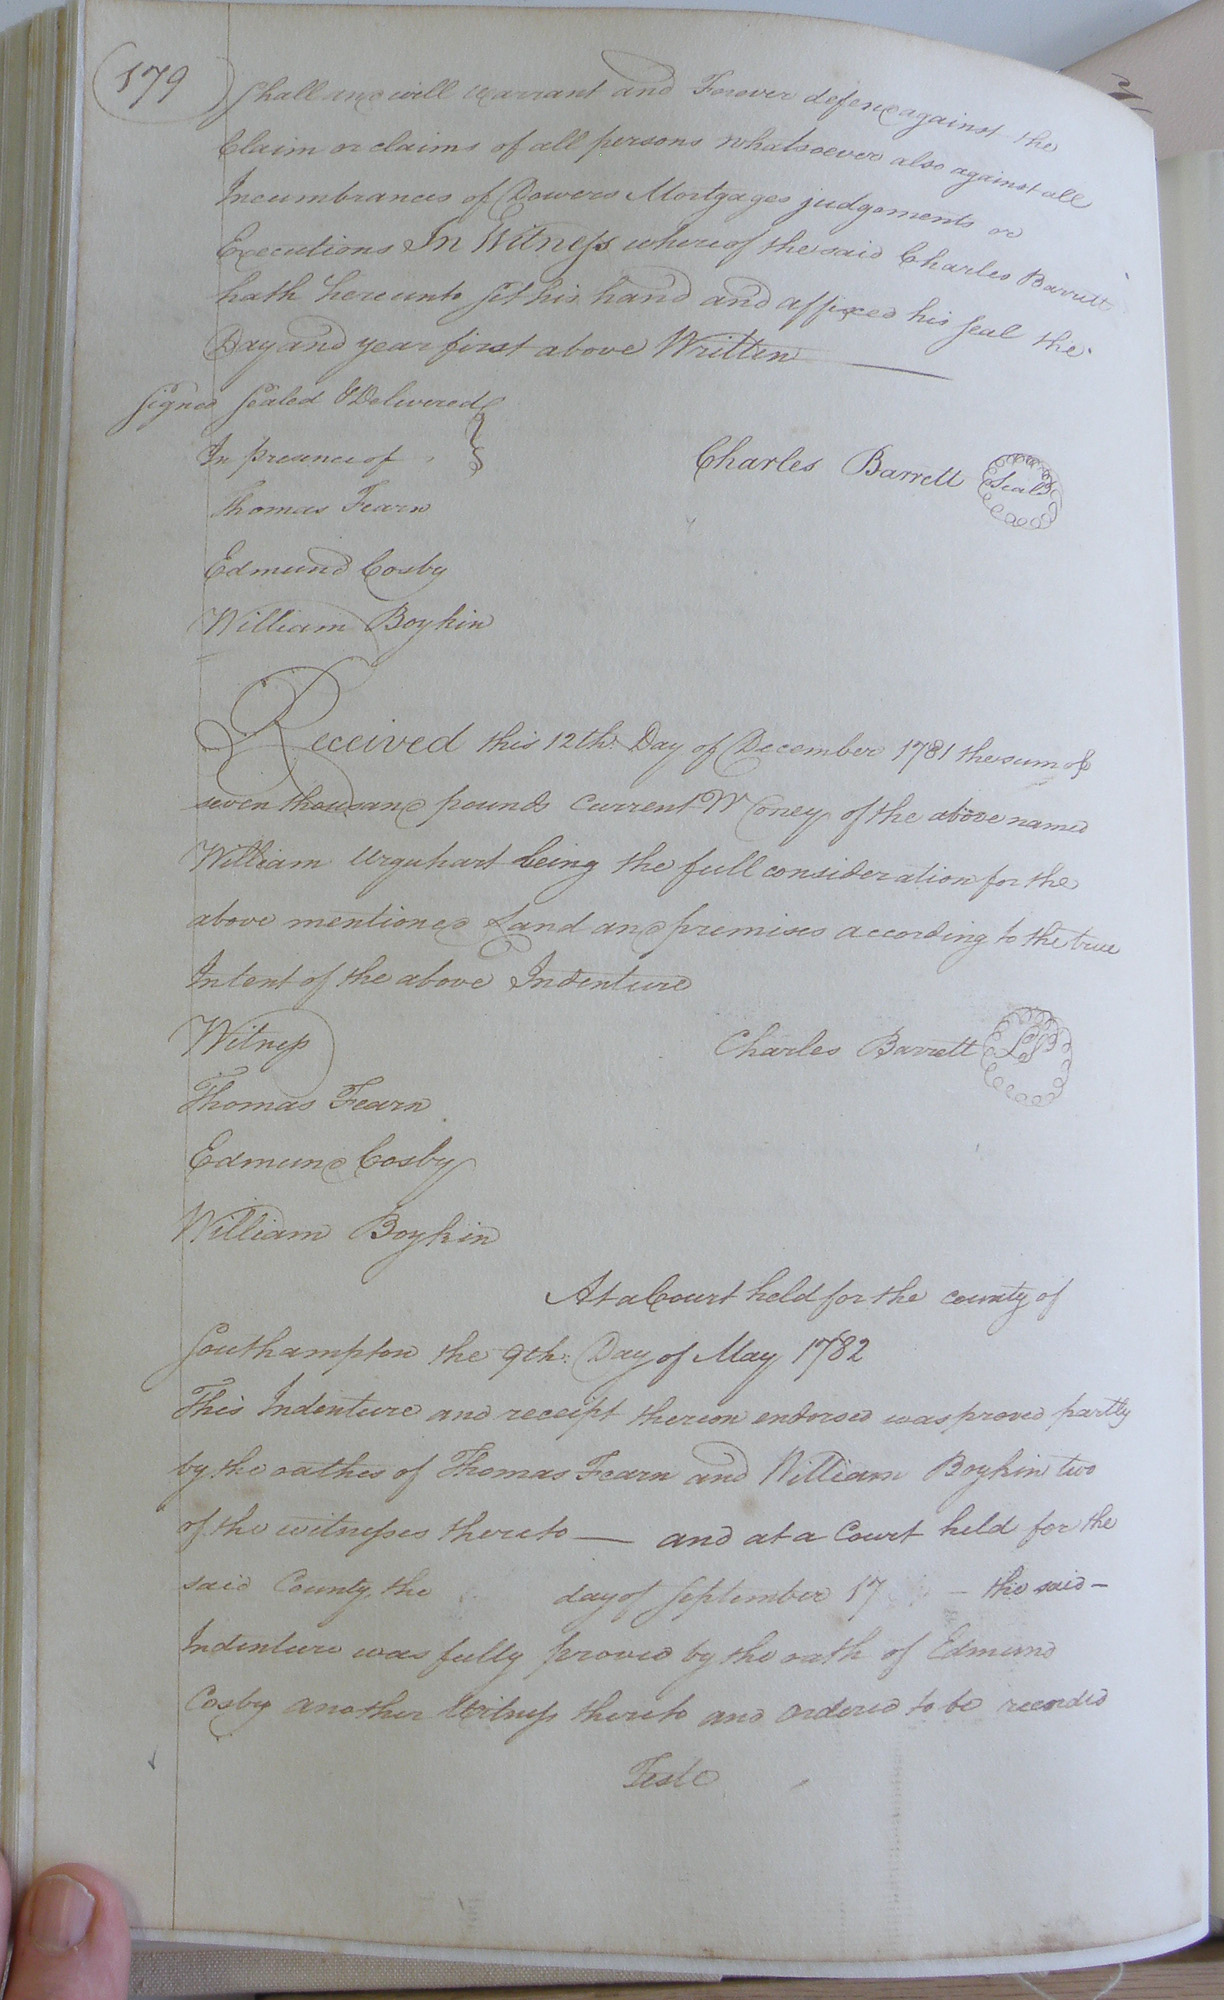 179
Shall and will warrant and Forever defend against the
Claim or claims of all persons whatsoever also against all
Incumbrances of Dowers Mortgages judgements or
Executions In Witness whereof the said Charles Barrett
hath hereunto set his hand and affixed his seal the
Day and year first above Written
Signed Sealed & Delivered
In presence of
Charles Barrett Seal
Thomas Fearn
Edmund Cosby
William Boykin
Received this 12th. Day of December 1781 the sum of
seven thousand pounds Current Money of the above named
William Urquhart being the full consideration for the
above mentioned Land and premises according to the true
Intent of the above Indenture
Witness
Charles Barrett LS
Thomas Fearn
Edmund Cosby
William Boykin
At a Court held for the county of
Southampton the 9th: Day of May 1782
This Indenture and receipt thereon endorsed was proved partly
by the oathes of Thomas Fearn and William Boykin two
of the witnesses thereto — and at a Court held for the
said County, the day of September 17 – the said –
Indenture was fully proved by the oath of Edmund
Cosby another Witness thereto and ordered to be recorded
Teste